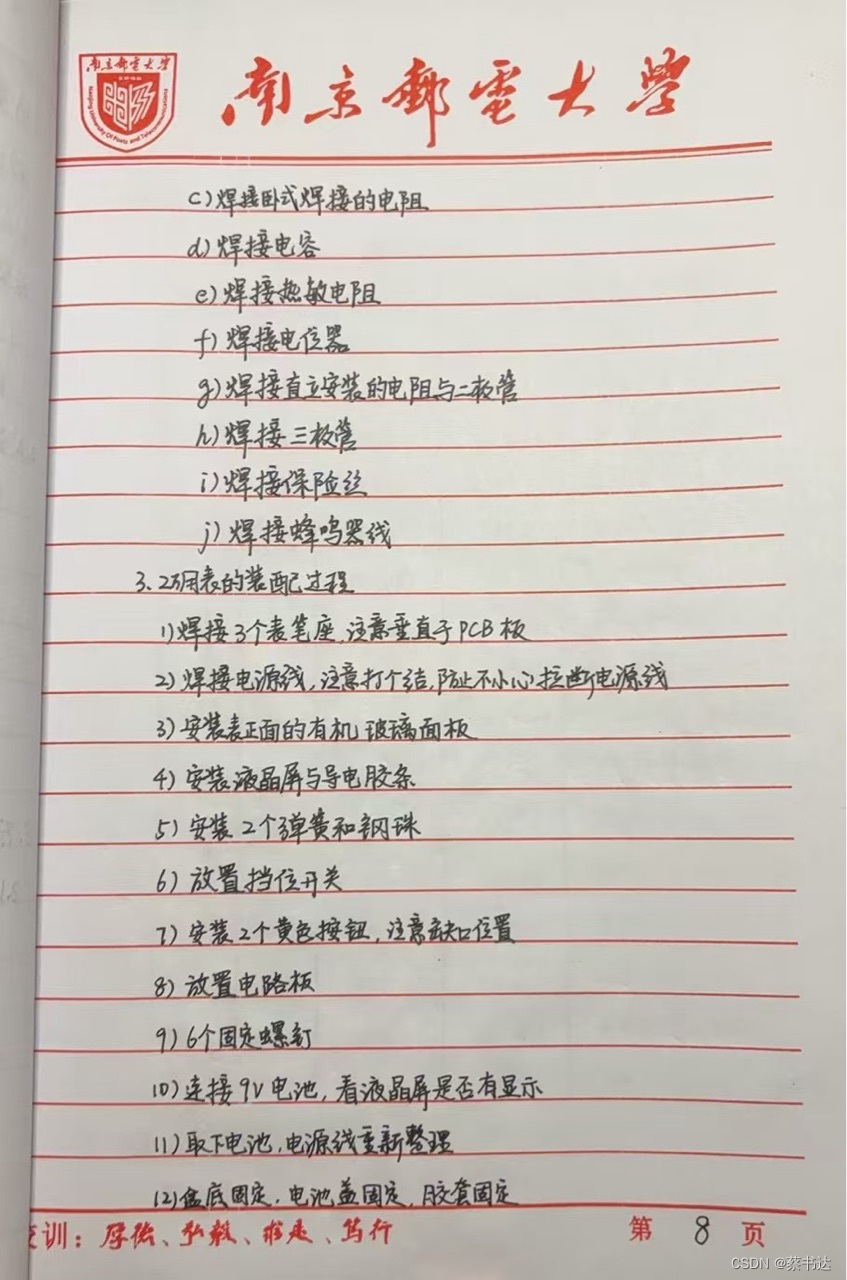 南京郵電大學
南京郵電大學
Nanjing University Of Posts and Telecommunications
c)焊接卧式焊接的电阻
d)焊接电容
e)焊接热敏电阻
f)焊接电位器
g)焊接直立安装的电阻与二极管
h)焊接三极管
i)焊接保险丝
j)焊接蜂鸣器线
3.万用表的装配过程
1)焊接3个表笔座,注意垂直于PCB板
2)焊接电源线,注意打个结,防止不小心拉断电源线
3)安装表正面的有机玻璃面板
4)安装液晶屏与导电胶条
5)安装2个弹簧和钢珠
6)放置挡位开关
7)安装2个黄色按钮,注意缺口位置
8)放置电路板
9)6个固定螺钉
10)连接9V电池,看液晶屏是否有显示
11)取下电池,电源线重新整理
12)盒底固定,电池盖固定,胶套固定
校训:厚德、弘毅、求是、笃行
第 8 页
CSDN @蔡书达